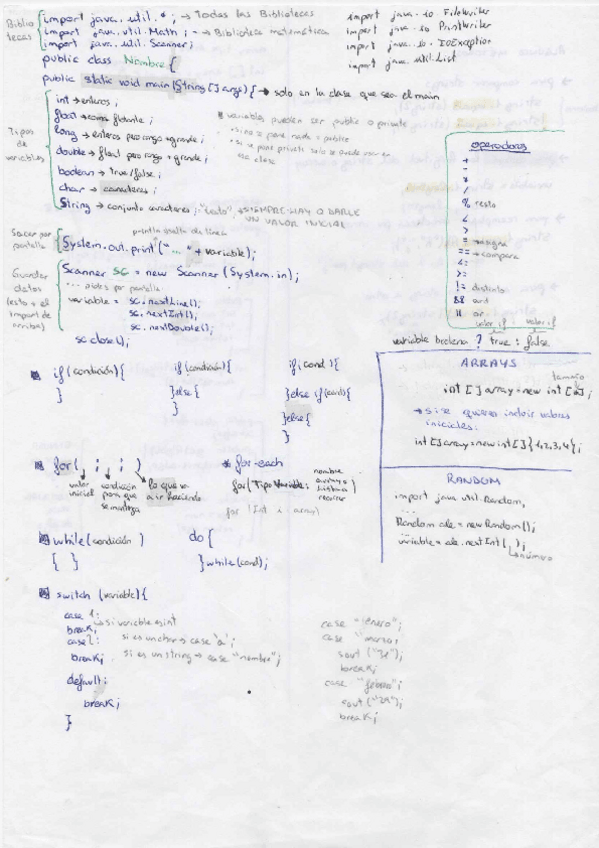 Biblio
tecas
import java.util.*; → Todas las Bibliotecas
import java.util.Math; → Biblioteca matemática
import java.util.Scanner;
import java.io.FileWriter
import java.io.PrintWriter
import java.io.IOException
import java.util.List
public class Nombre {
public static void main (String []args) { → solo en la clase que sea el main
Tipos
de
variables
int → enteros;
float → coma flotante;
long → enteros pero rango + grande;
double → float pero rango + grande;
boolean → true/false;
char → caracteres;
String → conjunto caracteres; "texto", SIEMPRE HAY Q DARLE
UN VALOR INICIAL
variables pueden ser public o private
• si no se pone nada = public
• si se pone private solo se puede usar en
esa clase
operadores
+
-
*
/
% resto
<
>
= → asigna
== → compara
<=
>=
!= distinto
&& and
|| or
valor if valor if
variable boolena ? true : false
Sacar por
pantalla
println salto de línea
System.out.print("..." + variable);
Guardar
datos
(esto + el
import de
arriba)
Scanner sc = new Scanner (System.in);
... datos por pantalla
variable = sc.nextLine();
sc.nextInt();
sc.nextDouble();
sc.close();
if (condición) {
}
if (condición) {
} else {
}
if (cond) {
} else if (cond) {
} else {
}
ARRAYS
tamaño
int [] array = new int [ ];
→ si se quieren incluir valores
iniciales:
int [] array = new int [] {1,2,3,4};
for ( ; ; )
valor
inicial
condición
para que
se mantega
lo que va
a ir haciendo
* for-each
for (Tipo Variable :
nombre
array o
lista a
recorrer
for (Int i : array)
RANDOM
import java.util.Random;
...
Random ale = new Random();
variable = ale.nextInt( );
→ número
while (condición)
{ }
do {
} while (cond);
switch (variable) {
case 1:
→ si variable es int
break;
case 2: si es un char → case 'a';
break; si es un string → case "nombre";
default:
break;
}
case "enero";
case "marzo;
sout ("31");
break;
case "febrero";
sout ("29");
break;